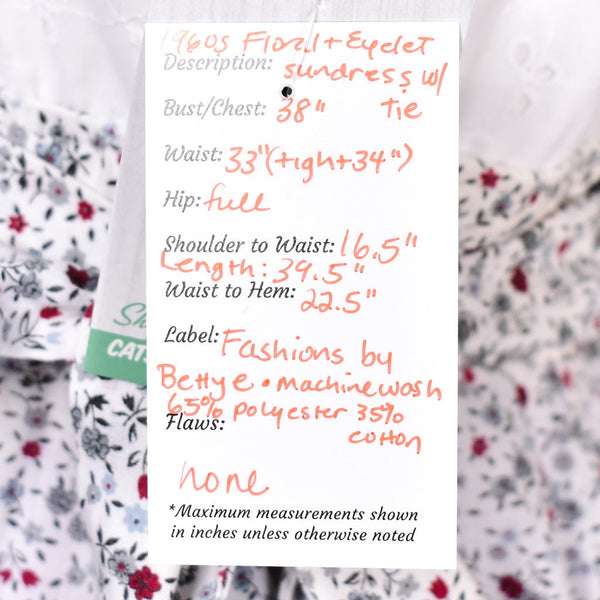 1960s Floral + Eyelet
Description: sundress w/
tie
Bust/Chest: 38"
Waist: 33" (tight 34")
Hip: full
Shoulder to Waist: 16.5"
Length: 39.5"
Waist to Hem: 22.5"
Label: Fashions by
Bettye • machine wash
65% polyester 35%
cotton
Flaws:
none
*Maximum measurements shown
in inches unless otherwise noted
Sh
CATS